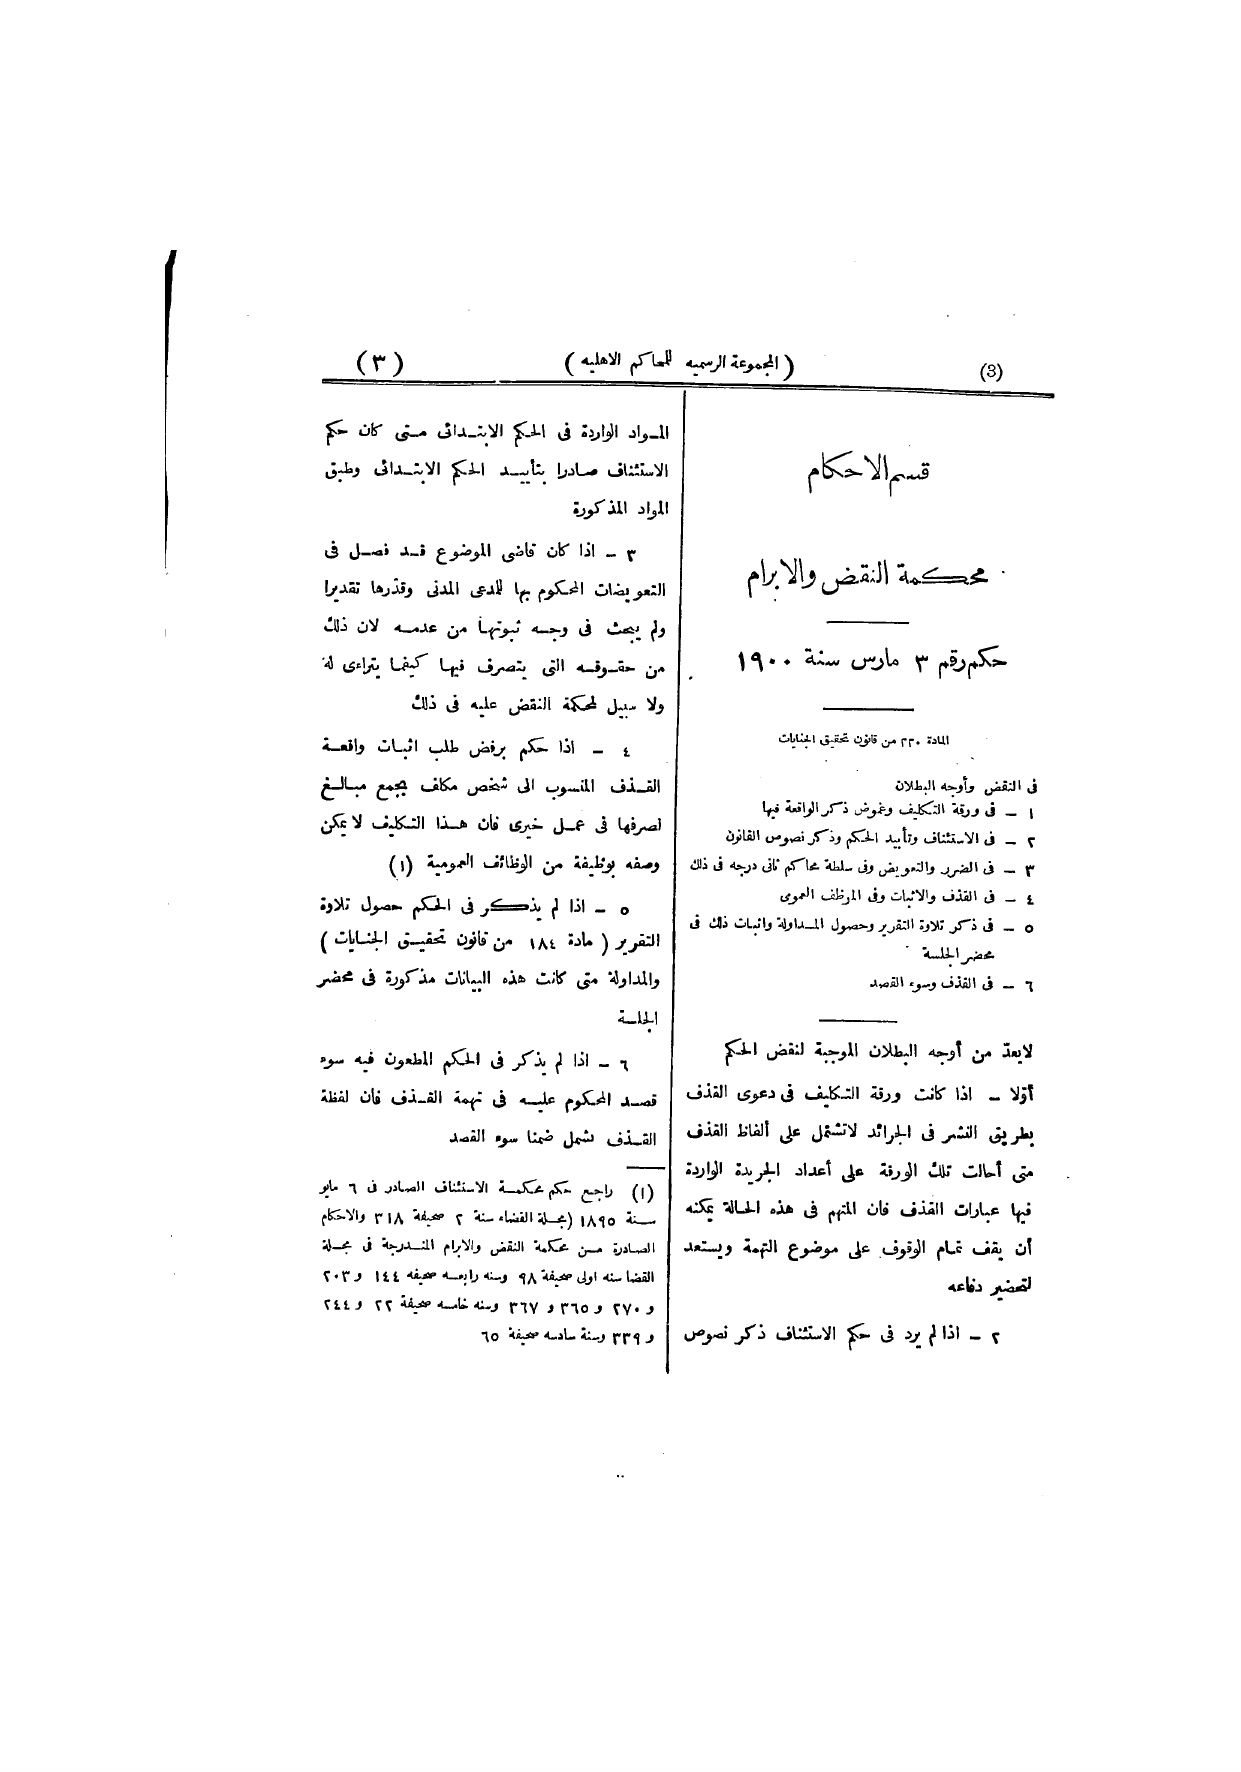 (3)
( المجموعة الرسميه للمحاكم الاهليه )
( ٣ )
قسم الاحكام
محكمة النقض والابرام
حكم رقم ٣ مارس سنة ١٩٠٠
المادة ٢٢٠ من قانون تحقيق الجنايات
فى النقض وأوجه البطلان
١ – فى ورقة التكليف وغموض ذكر الواقعة فيها
٢ – فى الاستئناف وتأييد الحكم وذكر نصوص القانون
٣ – فى الضرر والتعويض وفى سلطة محاكم ثانى درجه فى ذلك
٤ – فى القذف والاثبات وفى الموظف العمومى
٥ – فى ذكر تلاوة التقرير وحصول المداولة واثبات ذلك فى
محضر الجلسة
٦ – فى القذف وسوء القصد
لايعدّ من أوجه البطلان الموجبة لنقض الحكم
أوّلا – اذا كانت ورقة التكليف فى دعوى القذف
بطريق النشر فى الجرائد لاتشتمل على ألفاظ القذف
متى أحالت تلك الورقة على أعداد الجريدة الواردة
فيها عبارات القذف فان المتهم فى هذه الحالة يمكنه
أن يقف تمام الوقوف على موضوع التهمة ويستعد
لتحضير دفاعه
٢ – اذا لم يرد فى حكم الاستئناف ذكر نصوص
المواد الواردة فى الحكم الابتدائى متى كان حكم
الاستئناف صادرا بتأييد الحكم الابتدائى وطبق
المواد المذكورة
٣ – اذا كان قاضى الموضوع قد فصل فى
التعويضات المحكوم بها للمدعى المدنى وقدّرها تقديرا
ولم يبحث فى وجه ثبوتها من عدمه لان ذلك
من حقوقه التى يتصرف فيها كيفما يتراءى له
ولا سبيل لمحكمة النقض عليه فى ذلك
٤ – اذا حكم برفض طلب اثبات واقعة
القذف المنسوب الى شخص مكلف بجمع مبالغ
لصرفها فى عمل خيرى فان هذا التكليف لايمكن
وصفه بوظيفة من الوظائف العمومية (١)
٥ – اذا لم يذكر فى الحكم حصول تلاوة
التقرير ( مادة ١٨٤ من قانون تحقيق الجنايات )
والمداولة متى كانت هذه البيانات مذكورة فى محضر
الجلسة
٦ – اذا لم يذكر فى الحكم المطعون فيه سوء
قصد المحكوم عليه فى تهمة القذف فان لفظة
القذف تشمل ضمنا سوء القصد
(١) راجع حكم محكمة الاستئناف الصادر فى ٦ مايو
سنة ١٨٩٥ (مجلة القضاء سنة ٢ صحيفة ٣١٨ والاحكام
الصادرة من محكمة النقض والابرام المندرجة فى مجلة
القضا سنه اولى صحيفة ٩٨ وسنه رابعه صحيفه ١٤٤ و ٢٠٣
و ٢٧٠ و ٣٦٥ و ٣٦٧ وسنه خامسه صحيفة ٢٢ و ٢٤٤
و ٣٣٩ وسنة سادسه صحيفة ٦٥